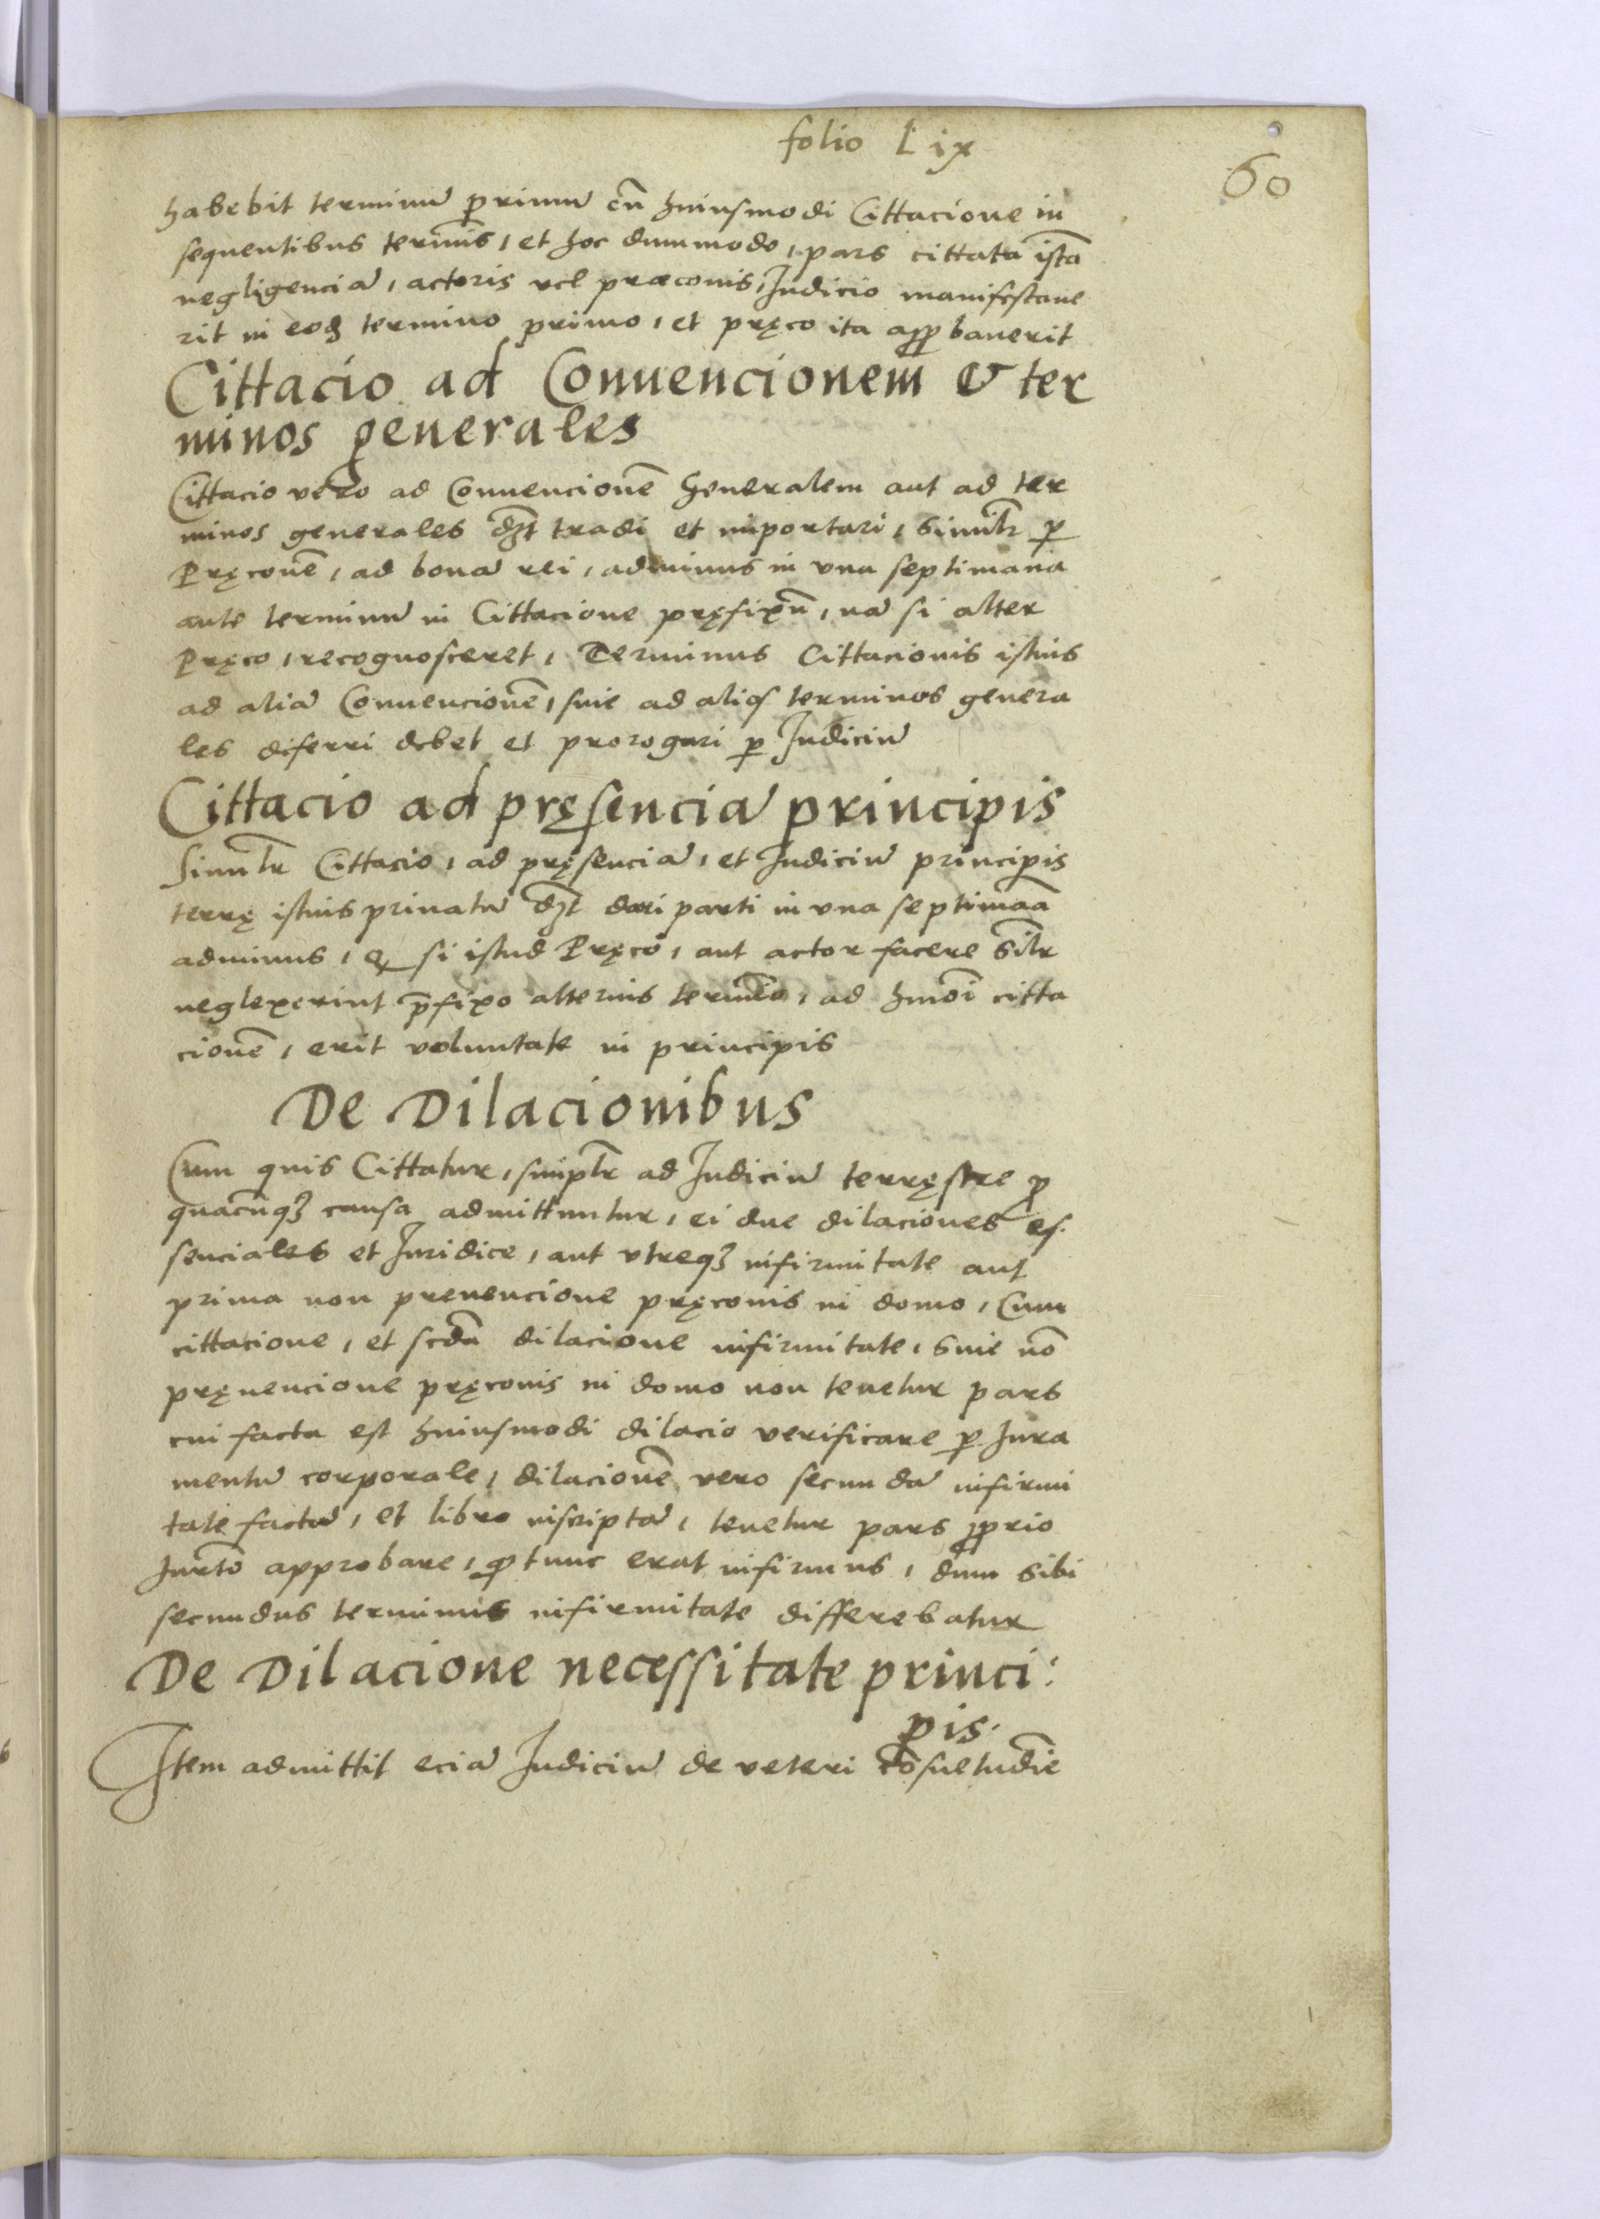 folio Lix
60
habebit terminū primū cū huiusmodi Cittacione in
sequentibus termīs, et hoc dummodo, pars cittata istā
negligenciā, actoris vel præconis, Judicio manifestaue
rit in eodꝫ termino primo, et pręco ita aꝓbauerit
Cittacio ad Conuencionem & ter
minos generales
Cittacio vero ad Conuencionē Generalem aut ad ter
minos generales dꝫt tradi et importari, Simīlr ꝑ
Pręconē, ad bona rei, adminus in vna septimana
ante terminū in Cittacione pręfixū, nā si alter
Pręco, recognosceret, Terminus Cittacionis istius
ad aliā Conuencionē, siue ad alios terminos genera
les diferri debet et prorogari ꝑ Judiciū
Cittacio ad pręsenciā principis
Simīlr Cittacio, ad pręsenciā, et Judiciū principis
terrę istius priuatū dꝫt dari parti in vna septimāā
adminus, & si istud Pręco, aut actor facere Sīlr
neglexerint p̄fixo alterius termīo, ad hmōi citta
cionē, erit voluntate in principis
De Dilacionibus
Cum quis Cittatur, simplr̄ ad Judiciū terręstre ꝓ
quacūqꝫ causa admittuntur, ei due dilaciones es.
senciales et Juridice, aut vtreqꝫ infirmitate aut
prima non preuencione pręconis in domo, Cum
cittacione, et scdā dilacione infirmitate, Siue nō
pręuencione pręconis in domo non tenetur pars
cui facta est huiusmodi dilacio verificare ꝑ Jura
mentū corporale, dilacionē vero secundā infirmi
tate factā, et libro inscriptā, tenetur pars ꝓprio
Jurtō approbare, ꝙ tunc erat infirmus, dum sibi
secundus terminus infirmitate differebatur
De Dilacione necessitate princi:
pis.
Item admittit eciā Judiciū de veteri cōsuetudīe